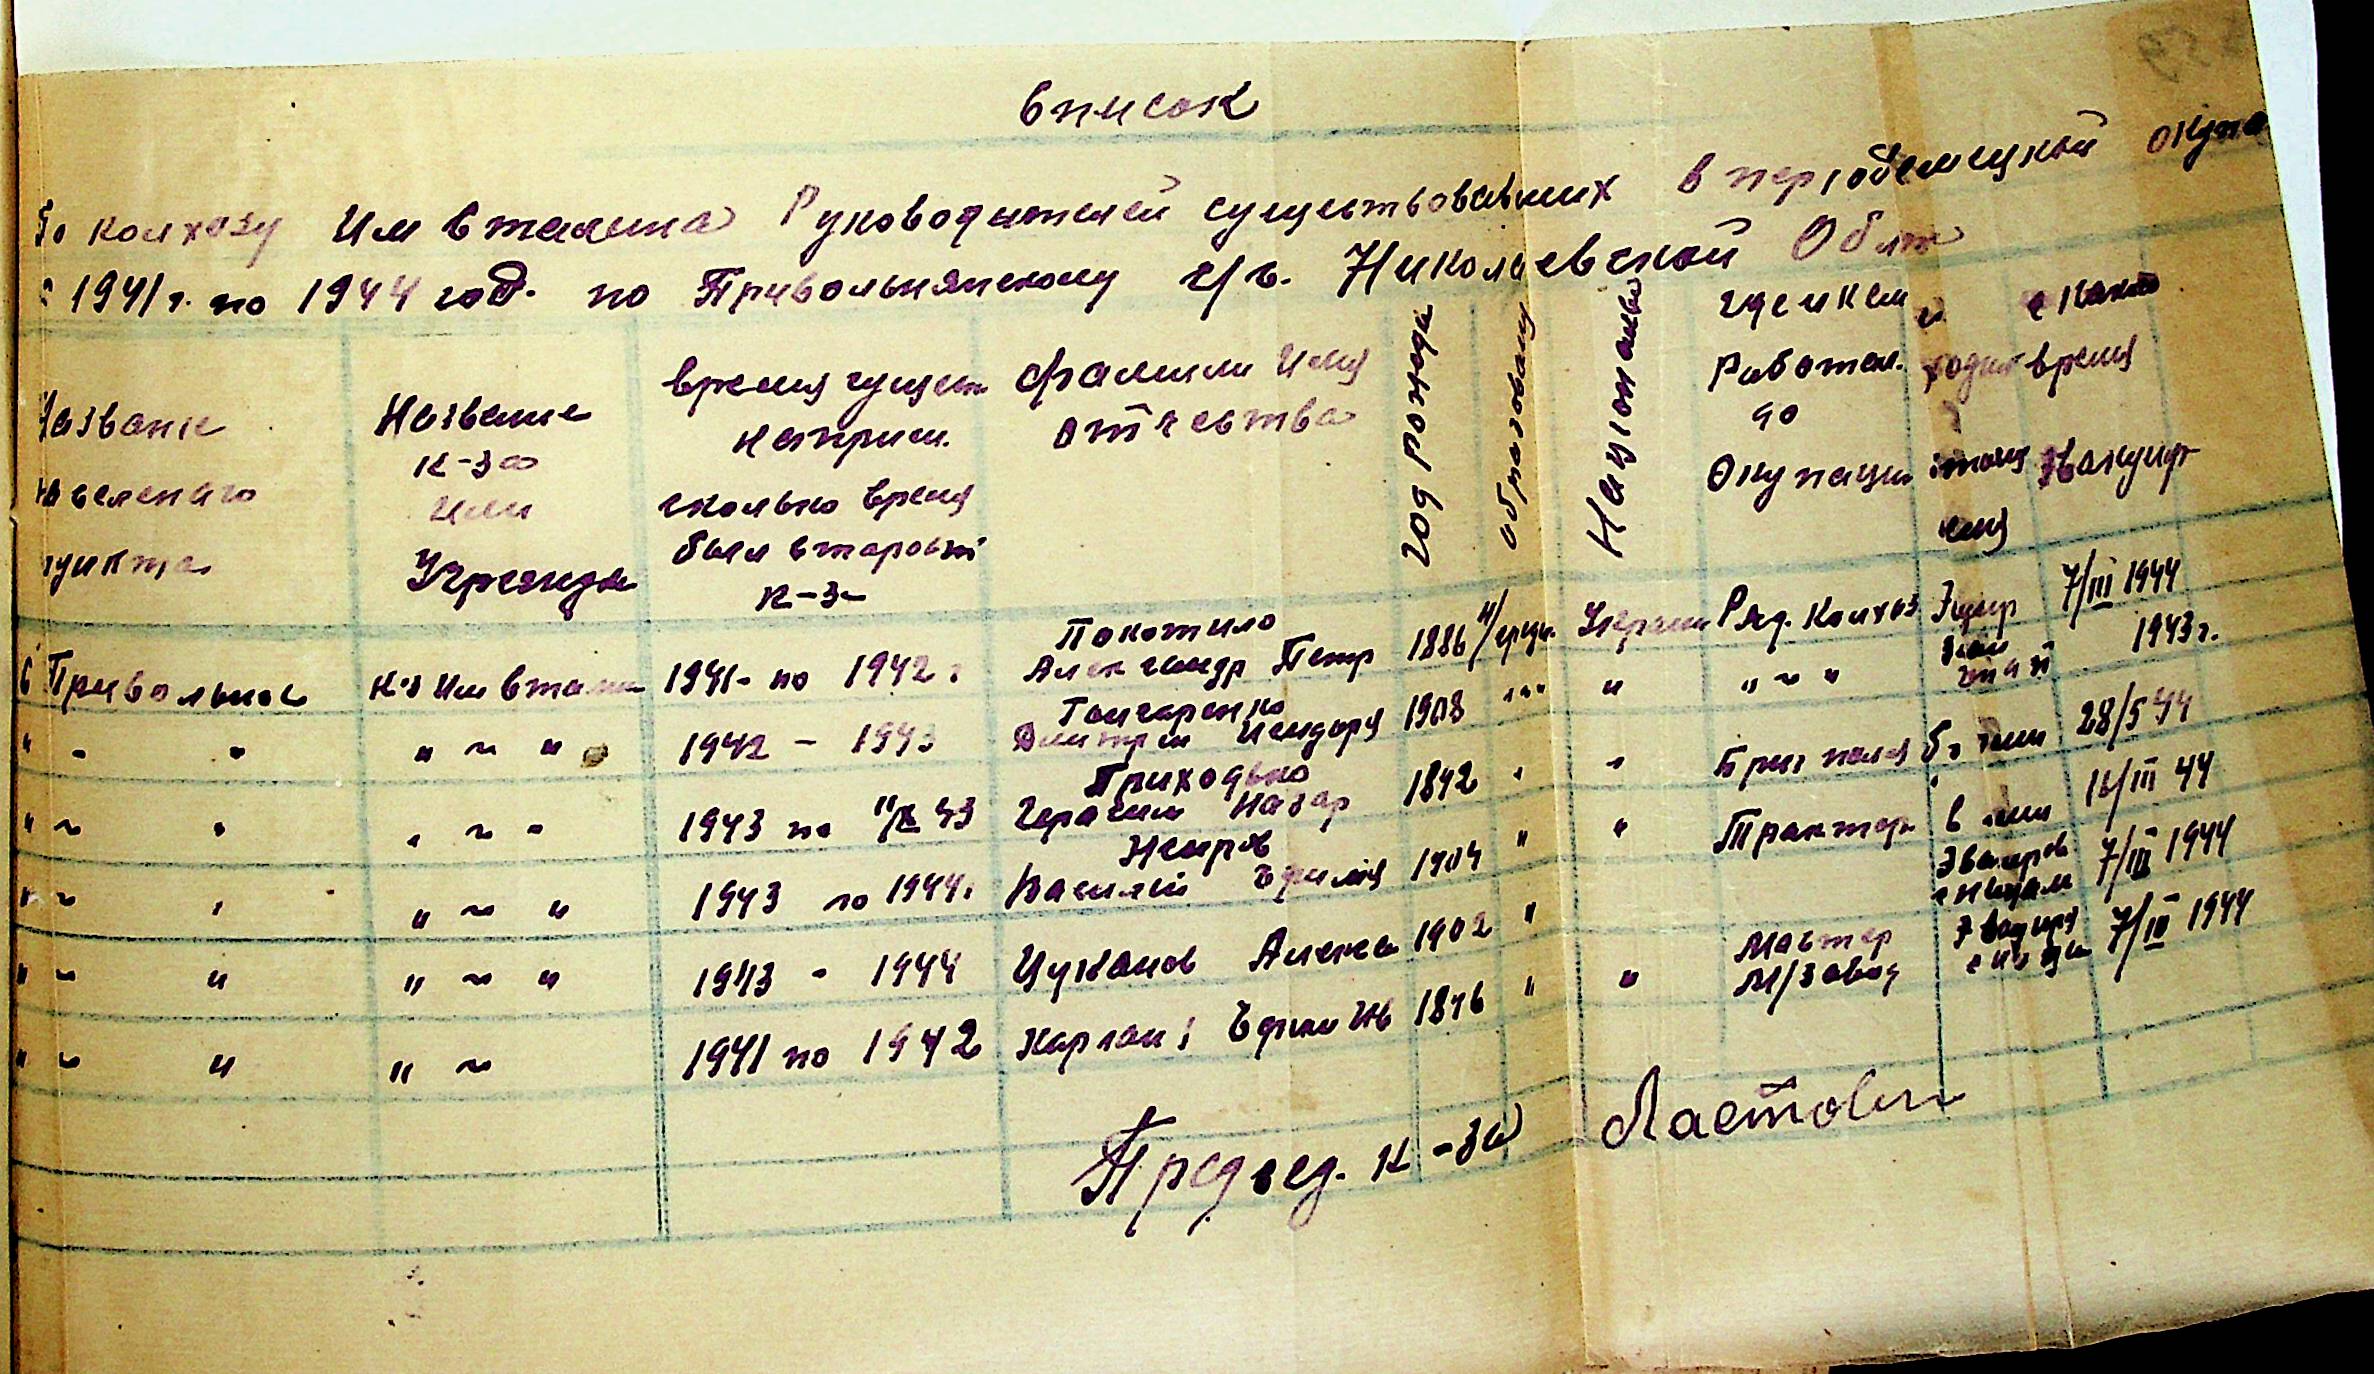 Список
По колхозу Им Сталина Руководителей существовавших в период немецкой окупа
с 1941 г. по 1944 год. по Привольнянскому с/с. Николаевской Обл
Название населеного пункта
Название к-за или Учрежде
время сущест наприм. сколько время был старостой к-за
фамили Имя отчества
год рожде
образовани
Национально
где и кем Работал до Окупации
с какого время эвакуиро
с Привольное к-з Им Стали 1941- по 1942 г Покотило Александр Петр 1886 н/средн. Украин Ряд. Колхоз 7/III 1944
" - " " ~ " 1942 - 1943 Гончаренко Дмитрий Исидоро 1908 " " " " ~ " 1943 г.
" ~ " " ~ " 1943 по 11/IX 43 Приходько Герасим Назар 1892 " " Бриг полев 28/5 44
" ~ " " ~ " 1943 по 1944 г Василий Ефимов 1904 " " Трактор 16/III 44
" ~ " " ~ " 1943 - 1944 Цуканов Алекса 1902 " Эвакуиров с немцам 7/III 1944
" ~ " " ~ 1941 по 1942 Ефим Ив 1876 " " Мастер М/завод Эвакуиро с немца 7/III 1944
Председ. к-за Ластов